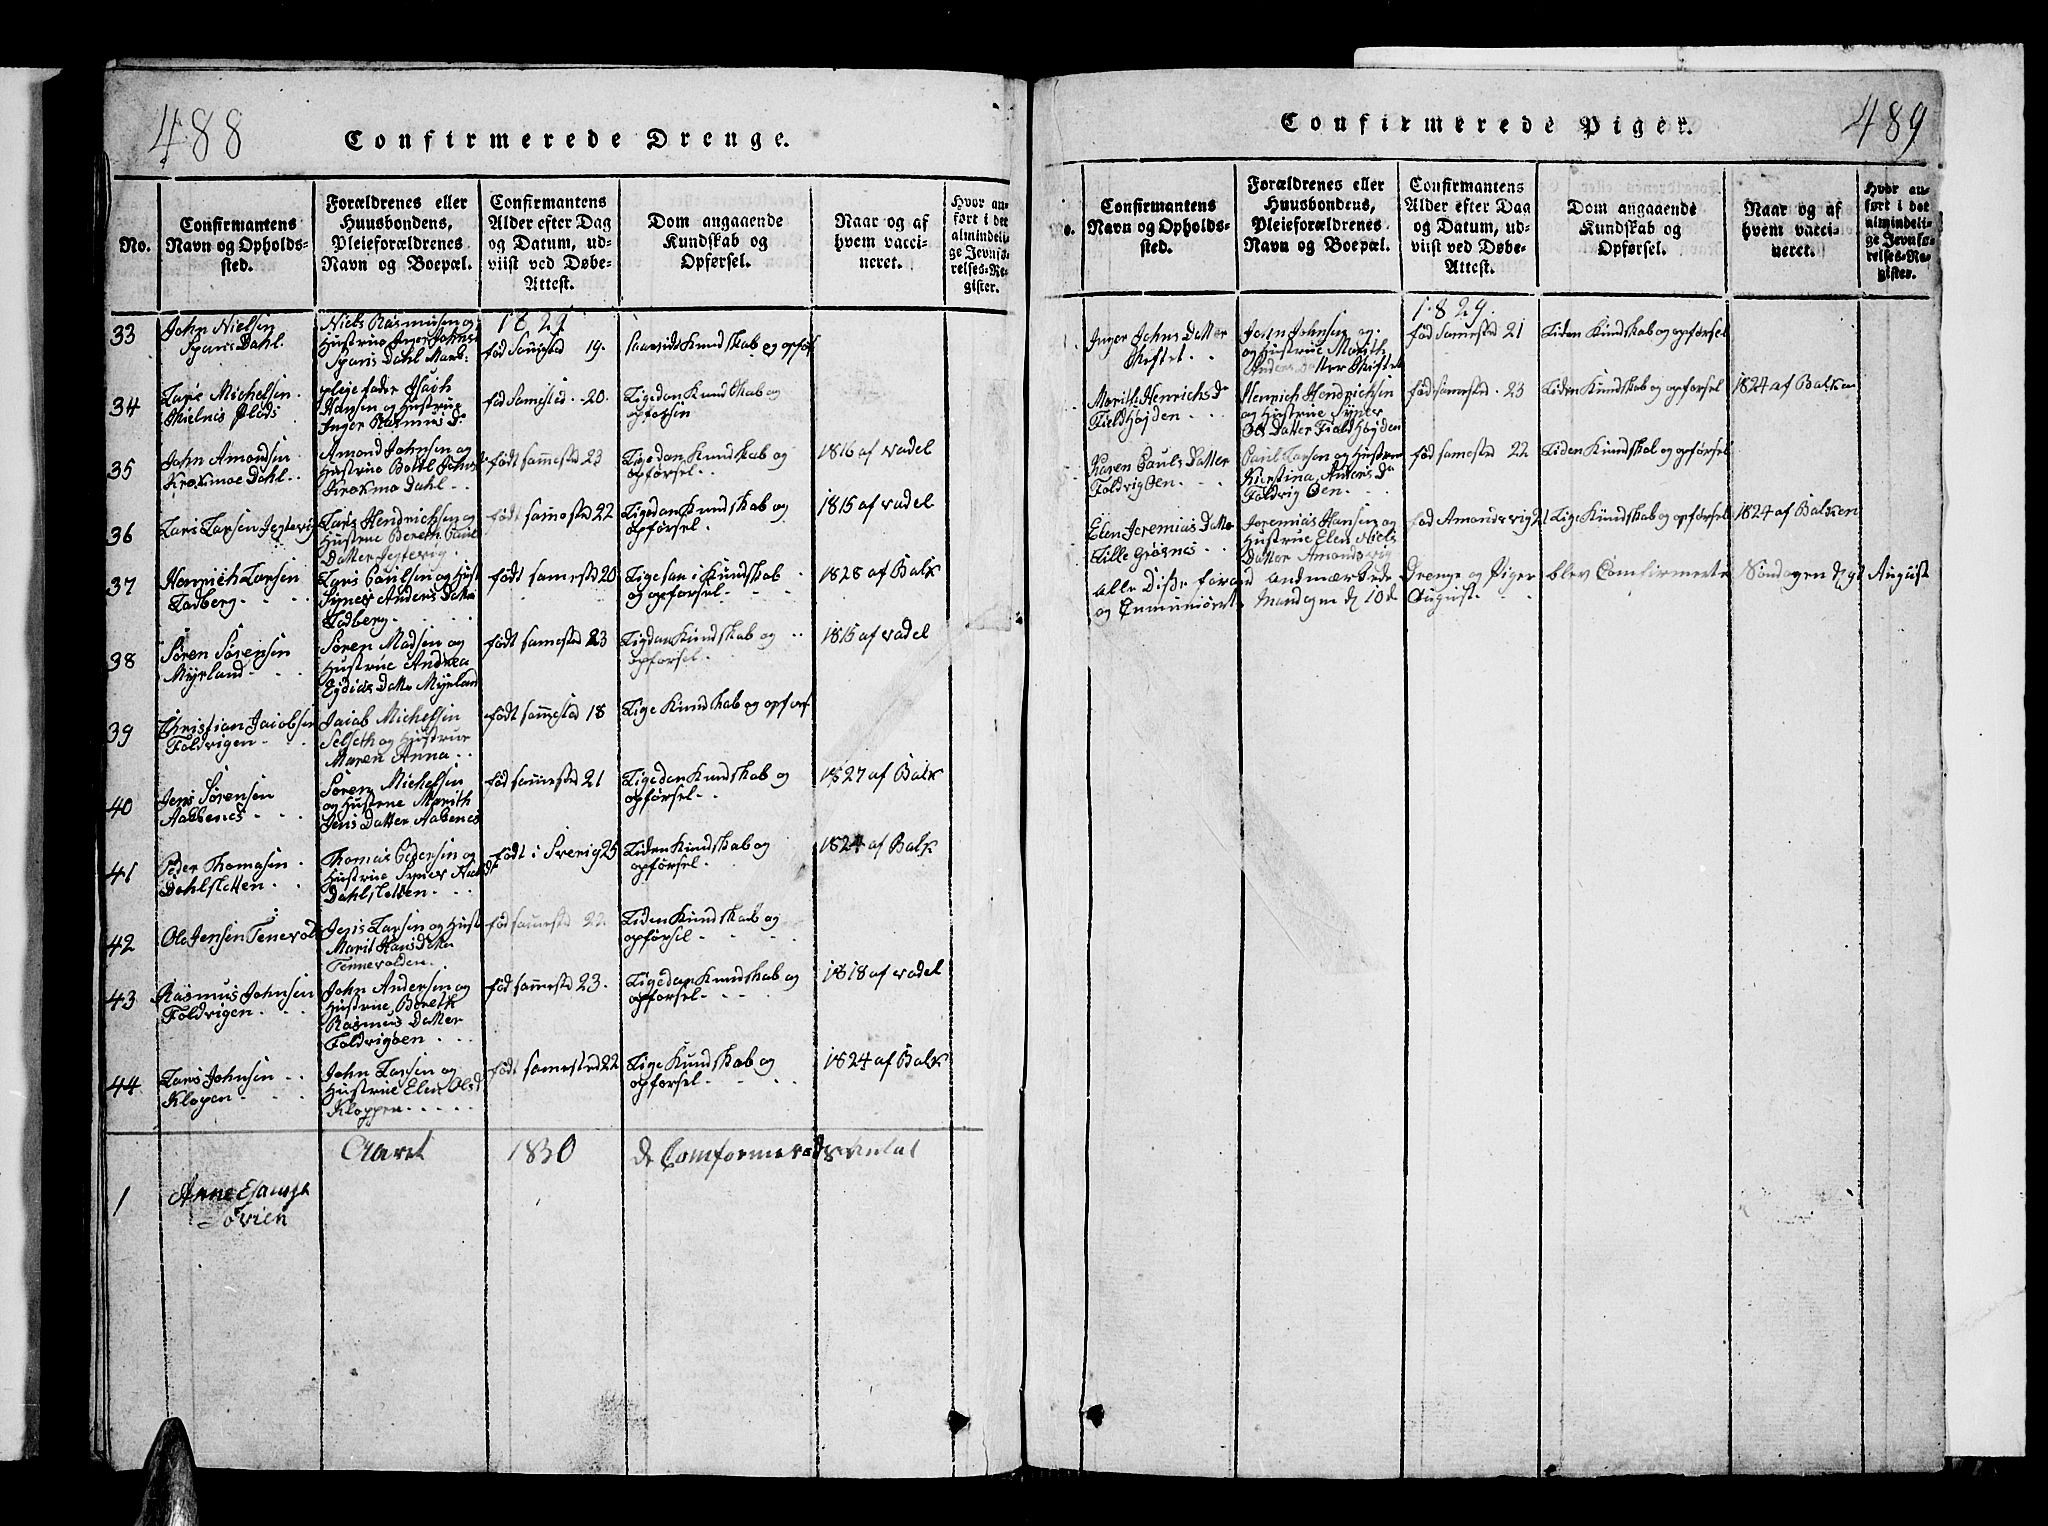 488
Confirmerede Drenge.
No.
Confirmantens
Navn og Opholds-
sted.
Forældrenes eller
Huusbondens,
Pleieforældrenes
Navn og Boepæl.
Confirmantens
Alder efter Dag
og Datum, ud-
viist ved Døbe-
Attest.
Dom angaaende
Kundskab og
Opførsel.
Naar og af
hvem vacci-
neret.
Hvor an-
ført i det
almindeli-
ge Jevnfø-
relses-Re-
gister.
33
John Nielsen
Dahl.
Niels Rasmusen og
Hustrue Inger Johns
Dahl
1829
fød Samested 19.
Kundskab og opførs
34
Lars Michelsen
pleje fader
Hansen og Hustrue
Inger Rasmus D.
fød Samested 20.
Ligedan Kundskab og
opførsen
35
John Amondsen
Krokmoe Dahl
Amond Johnsen og
Hustrue Johns
Krokmo Dahl
født sammested 23
Ligedan Kundskab og
opførsel
1816 af Vadel
36
Lars Larsen
Lars Hendrichsen og
Hustrue Poul
Datter
født sammested 22
Ligedan Kundskab og
opførsel.
1815 af Vadel
37
Henrich Larsen
Ladberg
Lars Poulsen og Hust
Synev Anders Datter
Ladberg
født samested 20
Ligesaa i Kundskab
og opførsel
1828 af Balk
38
Søren Sørensen
Myrland
Søren Madsen og
Hustrue Andrea
Myrland
født samested 23
Ligedan Kundskab og
opførsel
1815 af Vadel
39
Christian Jacobsen
Foldvigen
Jacob Michelsen
Selseth og Hustrue
Maren Anna
født sammested 18
Lige Kundskab og opførs
40
Jens Sørensen
Aabenes
Søren Michelsen
og Hustrue Marith
Jens Datter Aabenes
fød sammested 21
Ligedan Kundskab og
opførsel
1827 af Balk
41
Peder Thomasen
Dahlsletten
Thomas Pedersen og
Hustrue Synev
Dahlsletten
født i Sverig 25
Liden Kundskab og
opførsel
1824 af Balk
42
Ole Jensen Tenevold
Jens Larsen og Hust
Marit Hans datter
Tennevolden
fød sammested 22
Liden Kundskab og
opførsel
43
Rasmus Johnsen
Foldvigen
John Andersen og
Hustrue Bereth
Rasmus Datter
Foldvigøen
fød sammested 23.
Ligedan Kundskab og
opførsel
1818 af Vadel
44
Lars Johnsen
Klopen
John Larsen og
Hustrue Elen Olsd
Kloppen
født samested 22
Lige Kundskab og
opførsel
1824 af Balk
Aaret 1830 de
1
Anne
489
Confirmerede Piger.
Confirmantens
Navn og Opholds-
sted.
Forældrenes eller
Huusbondens,
Pleieforældrenes
Navn og Boepæl.
Confirmantens
Alder efter Dag
og Datum, ud-
viist ved Døbe-
Attest.
Dom angaaende
Kundskab og
Opførsel.
Naar og af
hvem vacci-
neret.
Hvor an-
ført i det
almindeli-
ge Jevnfø-
relses-Re-
gister.
1829.
Inger Johns Datter
John Johnsen og
og Hustrue Marith
Anders Datter
fød Samested 21
Liden Kundskab og opførsel
Marith Henrichs D
Fieldhøjden
Henrich Hendrichsen
og Hustrue Synev
Ols Datter Fieldhøjden
fød samested 23
Liden Kundskab og opførsel
1824 af Balken
Karen Pouls Datter
Foldvigøen
Poul Larsen og Hustrue
Kirstina Anders D
Foldvig Øen
fød samested 22
Liden Kundskab og opførsel
Elen Jeremias Datter
Lille Grøsnes
Jeremias Hansen og
Hustrue Elen Niels
Datter Amondsvig
fød Amondsvig 21
Lige Kundskab og opførsel
1824 af Balken
Alle Disse foran anmærkede Drenge og Piger blev Comfirmerte Søndagen d 9d August
og Mandagen d 10de August